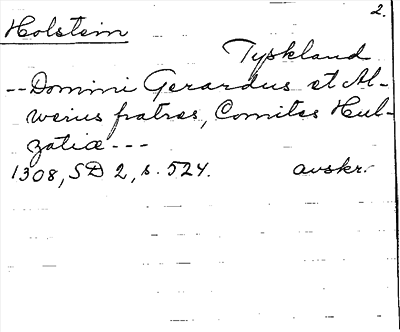 2.
Holstein
Tyskland
-- Domini Gerardus et Al-
werius fratres, Comites Hul-
zatiæ ---
1308, SD 2, s. 524. avskr.